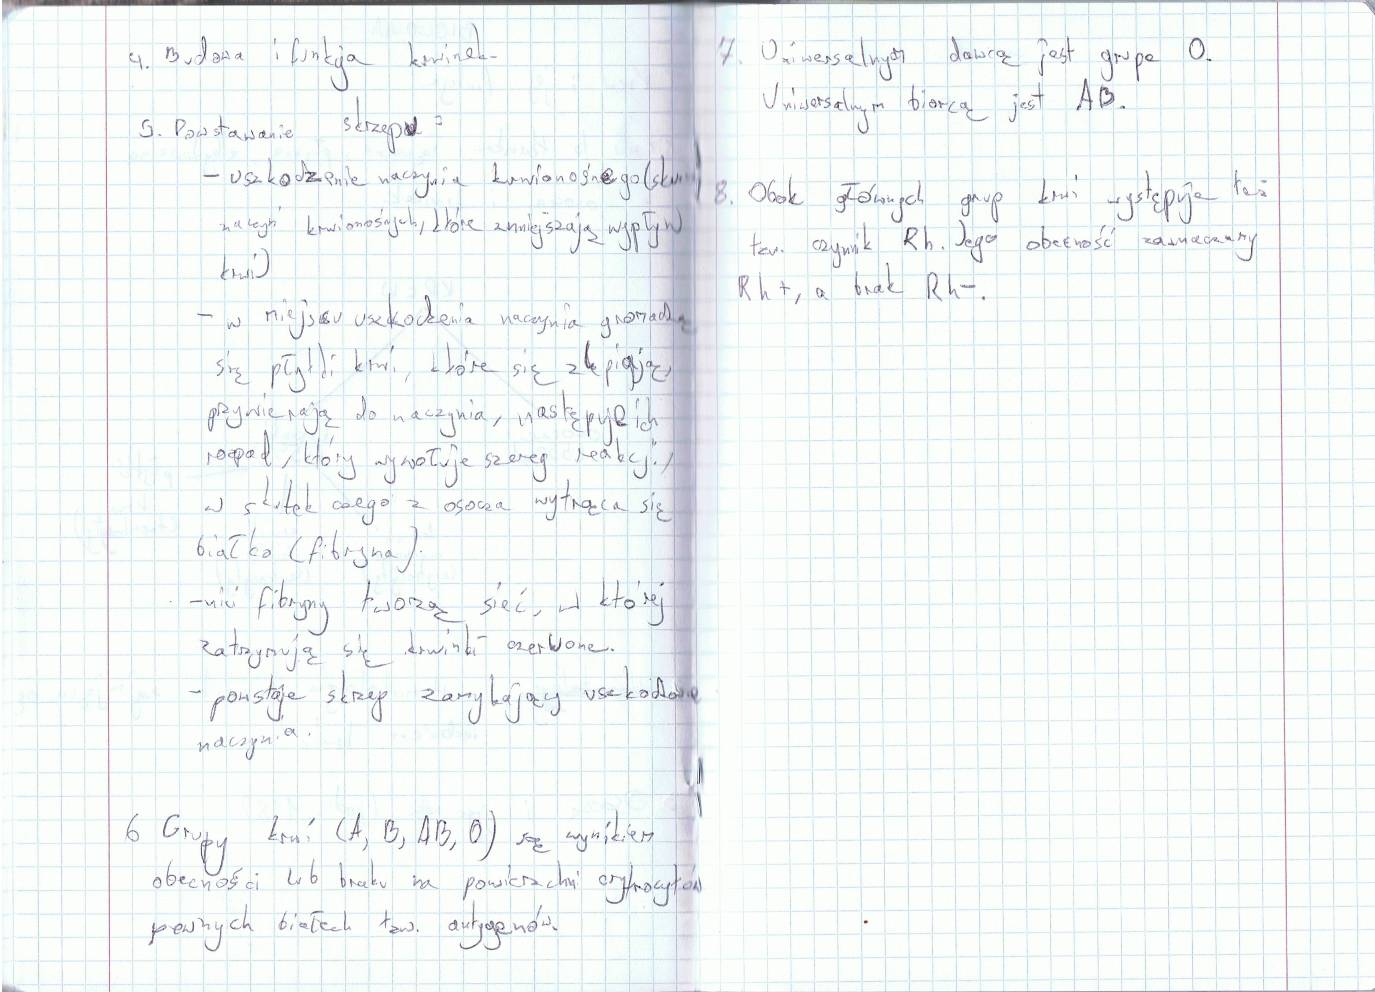 4. Budowa i funkcja krwinek.
5. Powstawanie skrzepu:
- uszkodzenie naczynia krwionośnego (skur
naczyń krwionośnych, które zmniejszają wypływ
krwi)
- w miejscu uszkodzenia naczynia gromadzą
się płytki krwi, które się zlepiają,
przywierają do naczynia, następuje ich
rozpad, który wywołuje szereg reakcji,
w skutek czego z osocza wytrąca się
białko (fibryna).
- nici fibryny tworzą sieć, w której
zatrzymują się krwinki czerwone.
- powstaje skrzep zamykający uszkodzone
naczynia.
6 Grupy krwi (A, B, AB, 0) są wynikiem
obecności lub braku na powierzchni erytrocytów
pewnych białek tzw. antygenów.
7. Uniwersalnym dawcą jest grupa 0.
Uniwersalnym biorcą jest AB.
8. Obok głównych grup krwi występuje też
tzw. czynnik Rh. Jego obecność zaznaczamy
Rh+, a brak Rh-.